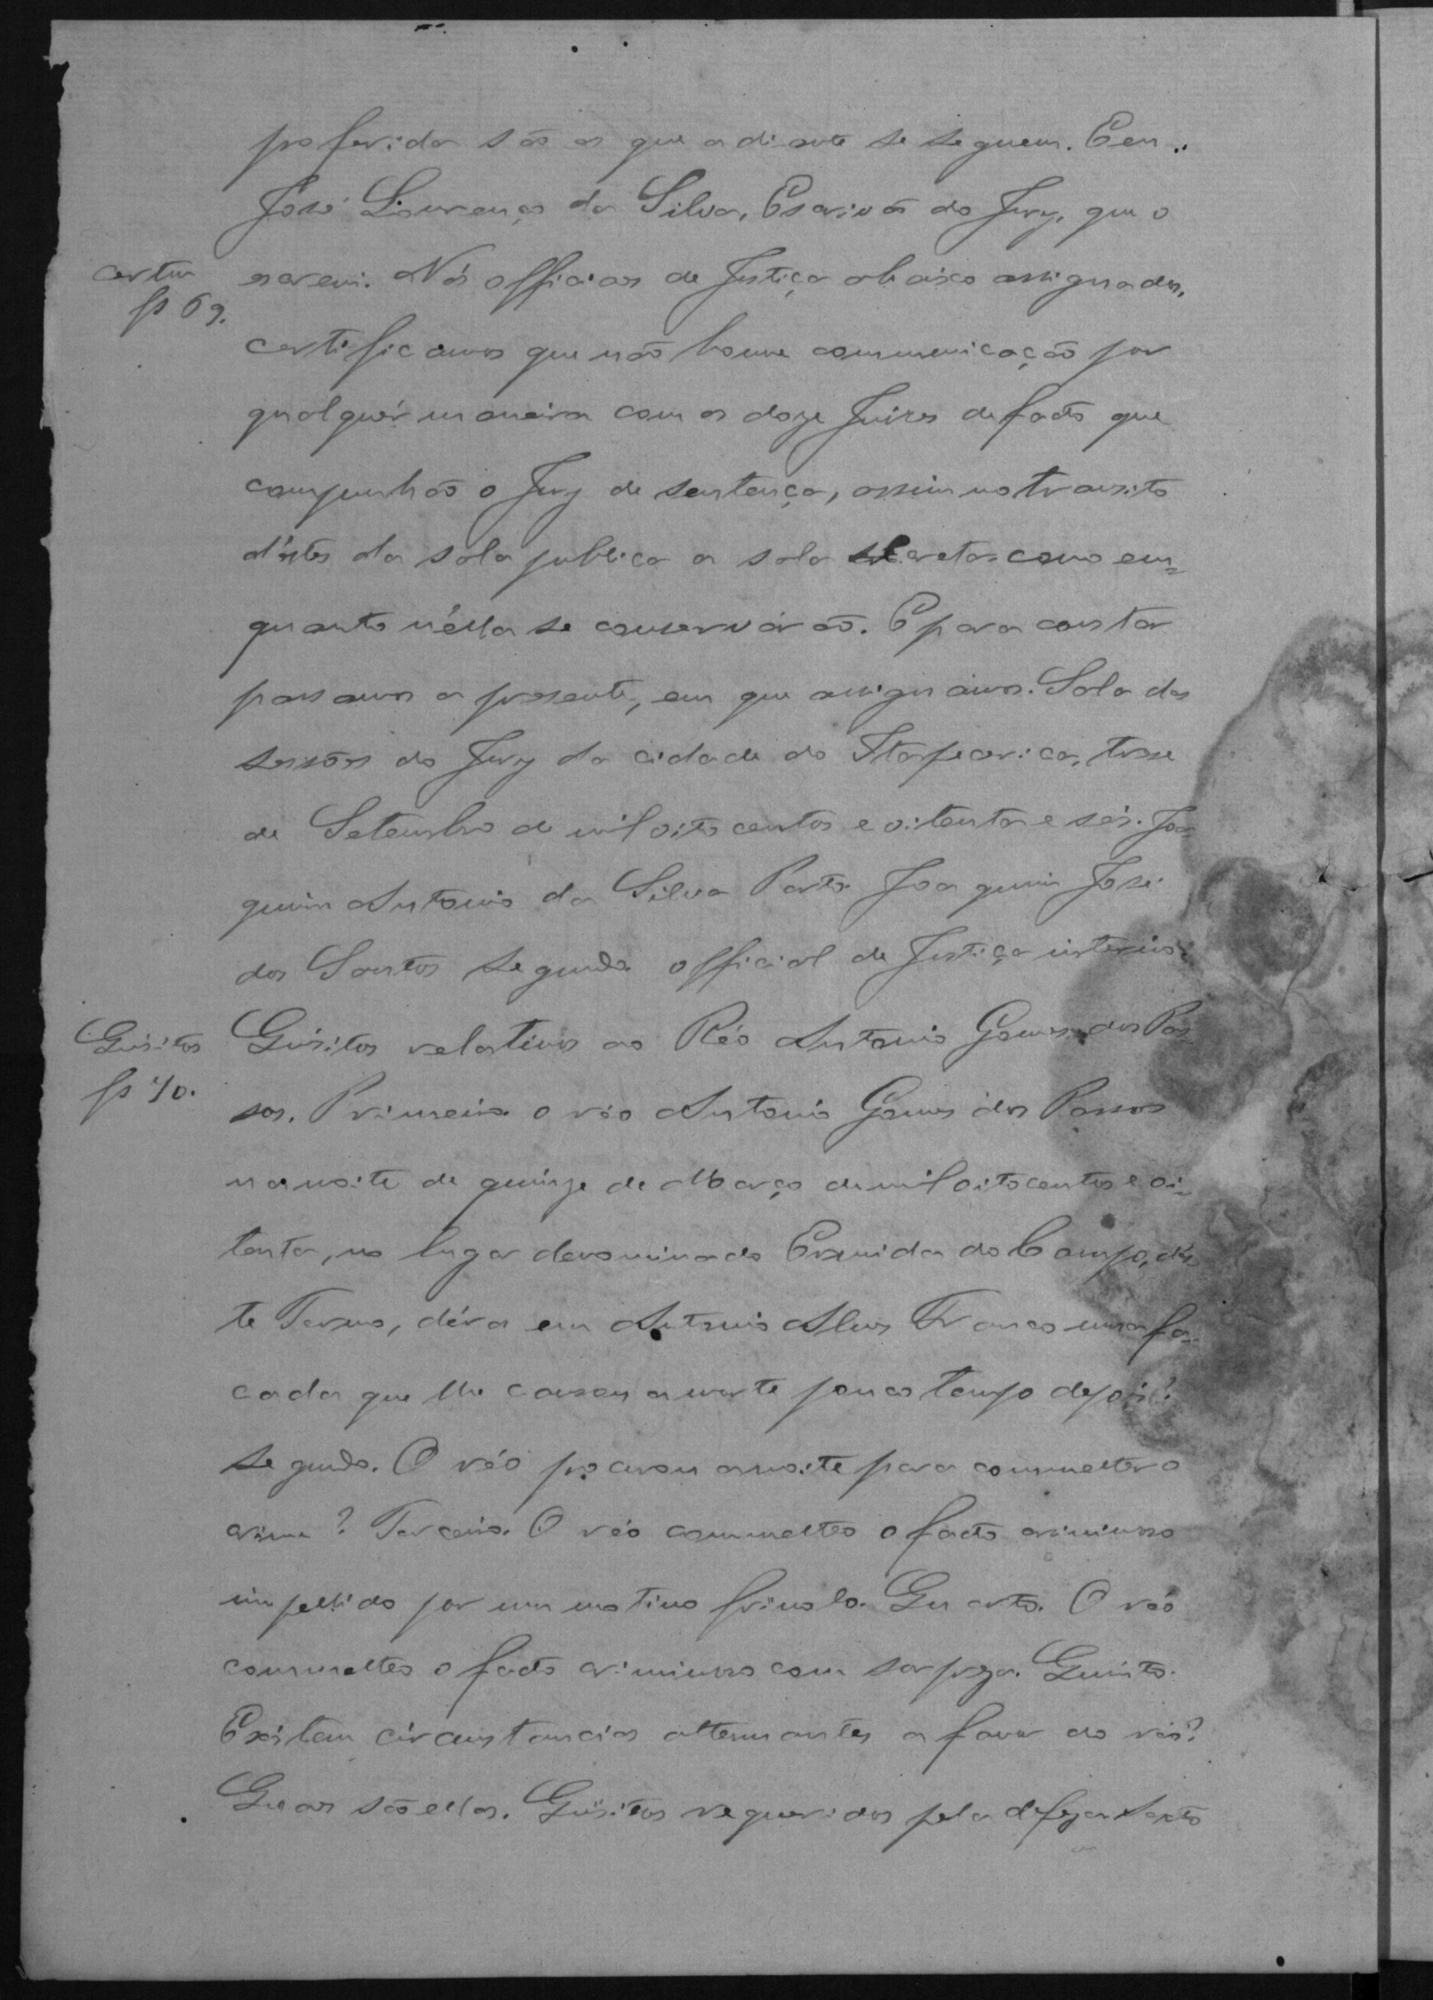 proferida são as que adiante se seguem. Eeu..
José Lourenço da Silva, Escrivão do Jury, que o
certm
fs 69.
escrevi. Nós officiaes de Justiça abaixo assignados,
certificamos que não houve communicação por
qualquér maneira com os doze Juizes de facto que
compunhão o Jury de sentença, assim no transito
d'éstes da sala publica a sala secreta como em=
quanto n'élla se conservárão. E para constar
passamos a presente, em que assignamos. Sala das
sessões do Jury da cidade do Itapecerica, trese
de Setembro de mil oito centos e oitenta e seis. Joa
quim Antonio da Silva Porto. Joaquim José
dos Santos segundo official de Justiça interino.
Quisitos
fs 70.
Quisitos relativos ao Réo Antonio Gomes dos Pas
sos. Primeiro o réo Antonio Gomes dos Passos
na noite de quinze de Março de mil oitocentos e oi-
tenta, no lugar denominado Ermida do Campo, d'és
te Termo, déra em Antonio Alves Franco uma fa-
cada que lhe causou a morte pouco tempo depois?
segundo. O réo procurou a noite para commetter o
crime? Terceiro. O réo commetteo o facto criminoso
impellido por um motivo frivolo. Quarto. O réo
commetteo o facto criminoso com sorpreza. Quinto.
Existem circunstancias attenuantes a favor do réo?
Quaes são ellas. Quisitos requeridos pela defeza Sexto